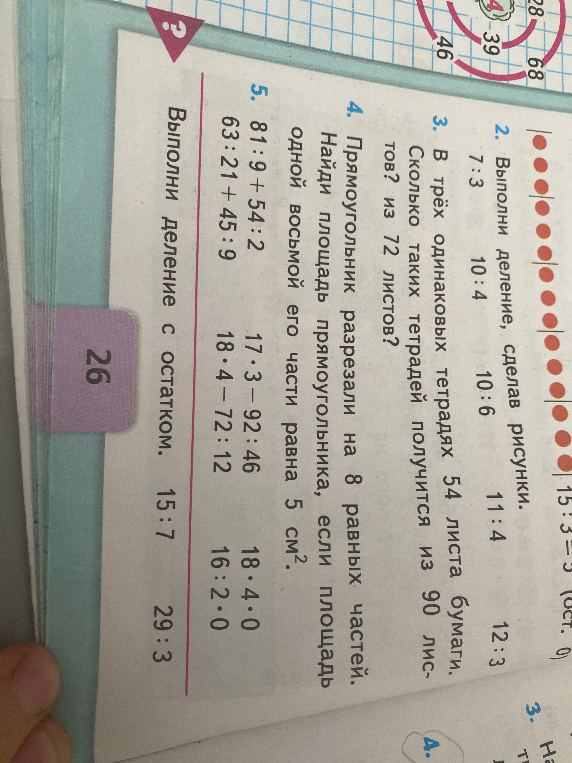 28
68
4
39
46
15 : 3 = 5 (ост. 0)
2. Выполни деление, сделав рисунки.
7 : 3 10 : 4 10 : 6 11 : 4 12 : 3
3. В трёх одинаковых тетрадях 54 листа бумаги.
Сколько таких тетрадей получится из 90 лис-
тов? из 72 листов?
4. Прямоугольник разрезали на 8 равных частей.
Найди площадь прямоугольника, если площадь
одной восьмой его части равна 5 см².
5. 81 : 9 + 54 : 2 17 · 3 − 92 : 46 18 · 4 · 0
63 : 21 + 45 : 9 18 · 4 − 72 : 12 16 : 2 · 0
? Выполни деление с остатком. 15 : 7 29 : 3
26
3. На
4.